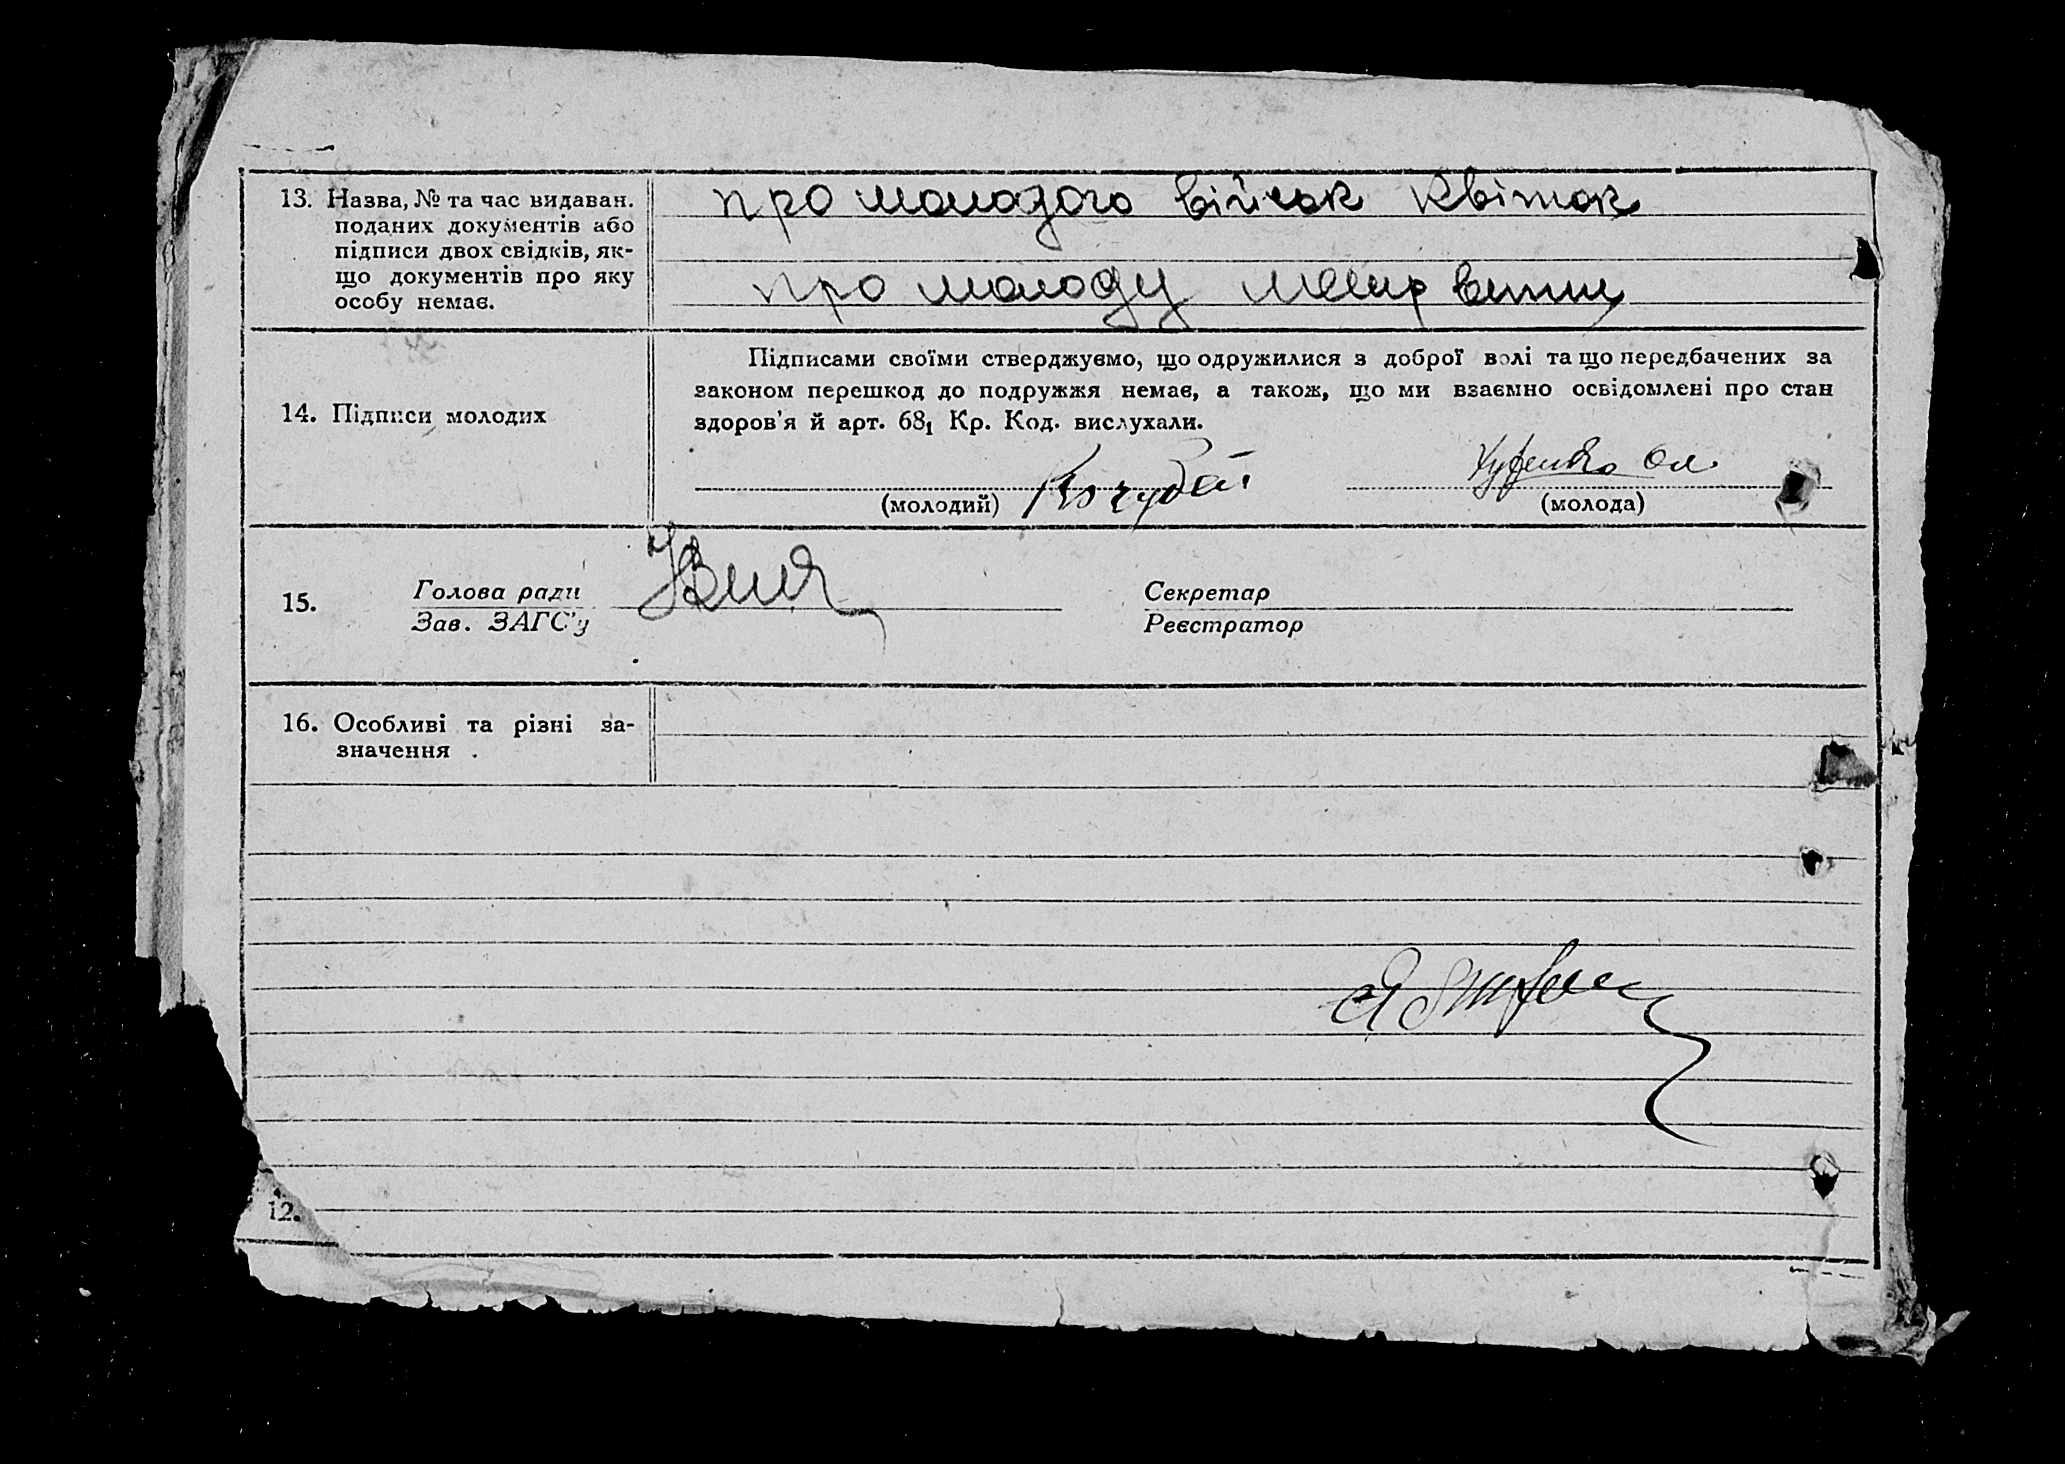 13. Назва, № та час видаван.
поданих документів або
підписи двох свідків, як-
що документів про яку
особу немає.
про молодого військ квиток
про молоду
14. Підписи молодих
Підписами своїми стверджуємо, що одружилися з доброї волі та що передбачених за
законом перешкод до подружжя немає, а також, що ми взаємно освідомлені про стан
здоров'я й арт. 68₁ Кр. Код. вислухали.
(молодий) Кочубей
(молода)
15.
Голова ради
Зав. ЗАГС'у
Секретар
Реєстратор
16. Особливі та різні за-
значення .
12.